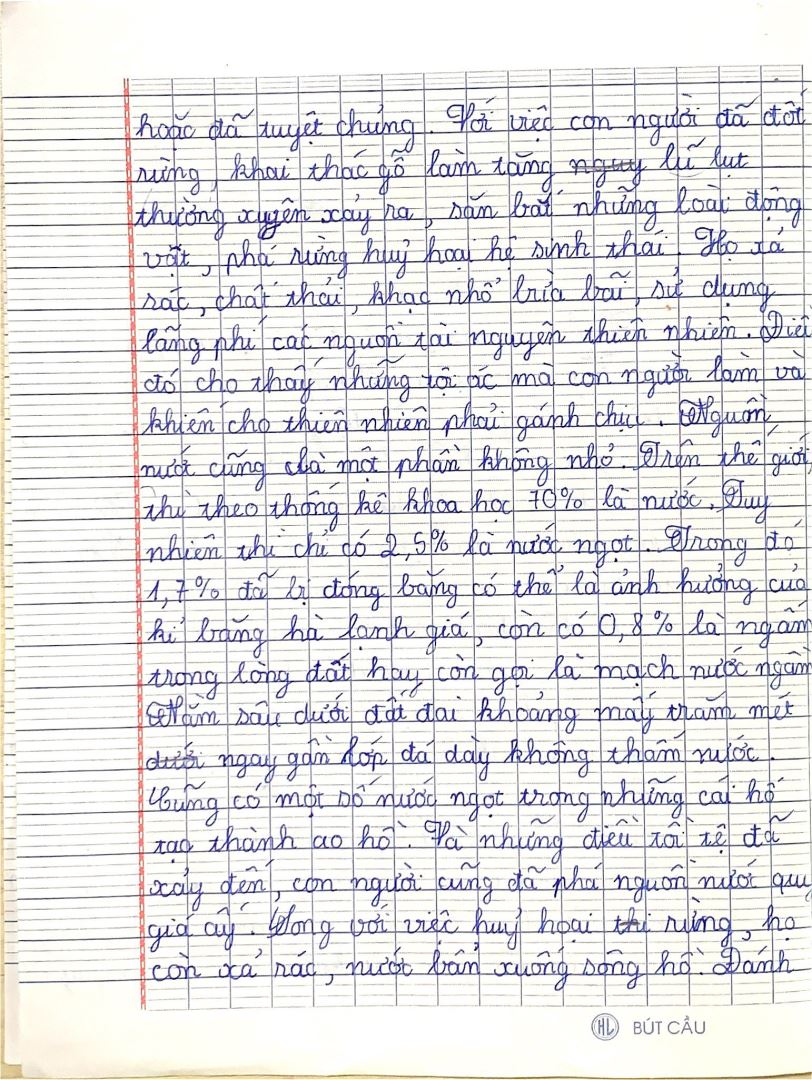 hoặc đã tuyệt chủng. Với việc con người đã đốt
rừng, khai thác gỗ làm tăng nguy lũ lụt
thường xuyên xảy ra, săn bắt những loài động
vật, phá rừng huỷ hoại hệ sinh thái. Họ xả
rác, chất thải, khạc nhổ bừa bãi, sử dụng
lãng phí các nguồn tài nguyên thiên nhiên. Điều
đó cho thấy những tội ác mà con người làm và
khiến cho thiên nhiên phải gánh chịu. Nguồn
nước cũng là một phần không nhỏ. Trên thế giới,
thì theo thống kê khoa học 70% là nước. Tuy
nhiên thì chỉ có 2,5% là nước ngọt. Trong đó
1,7% đã bị đóng băng có thể là ảnh hưởng của
kỉ băng hà lạnh giá, còn có 0,8% là ngấm
trong lòng đất hay còn gọi là mạch nước ngầm
Nằm sâu dưới đất đai khoảng mấy trăm mét
dưới ngay gần lớp đá dày không thấm nước.
Cũng có một số nước ngọt trong những cái hố
tạo thành ao hồ. Và những điều tồi tệ đã
xảy đến, con người cũng đã phá nguồn nước quý
giá ấy. Song với việc huỷ hoại thi rừng, họ
còn xả rác, nước bẩn xuống sông hồ. Đánh
HL BÚT CẦU